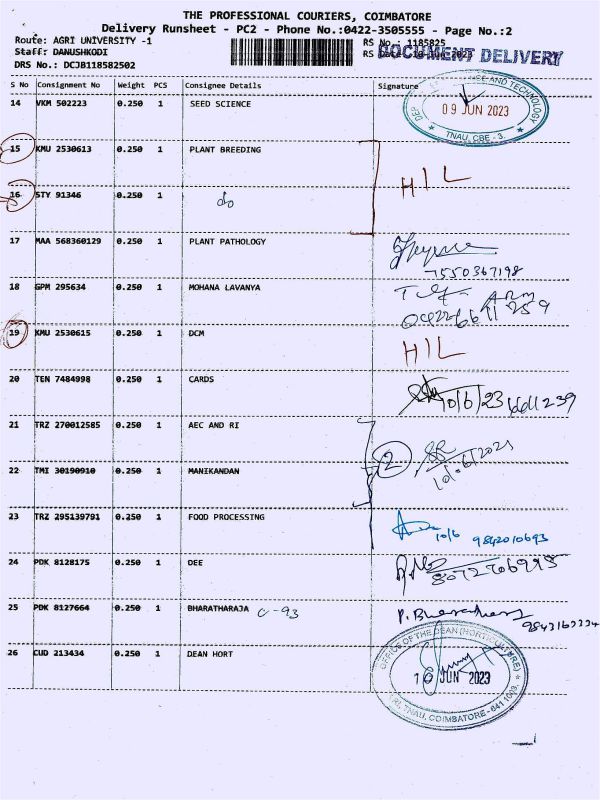 THE PROFESSIONAL COURIERS, COIMBATORE
Delivery Runsheet - PC2 - Phone No.:0422-3505555 - Page No.:2
Route: AGRI UNIVERSITY -1 RS No.: 1185825
Staff: DANUSHKODI RS Date: 10-Jun-2023 DOCUMENT DELIVERY
DRS No.: DCJB118582502
S No Consignment No Weight PCS Consignee Details Signature
14 VKM 502223 0.250 1 SEED SCIENCE
AND TECHNOLOGY
09 JUN 2023
TNAU, CBE - 3.
15 KMU 2530613 0.250 1 PLANT BREEDING
HIL
16 STY 91346 0.250 1 do
17 MAA 568360129 0.250 1 PLANT PATHOLOGY
7550367198
18 GPM 295634 0.250 1 MOHANA LAVANYA
19 KMU 2530615 0.250 1 DCM
HIL
20 TEN 7484998 0.250 1 CARDS
10/6/23 6611239
21 TRZ 270012585 0.250 1 AEC AND RI
2
22 TMI 30190910 0.250 1 MANIKANDAN
23 TRZ 295139791 0.250 1 FOOD PROCESSING
10/6 9842010693
24 PDK 8128175 0.250 1 DEE
25 PDK 8127664 0.250 1 BHARATHARAJA C-93
26 CUD 213434 0.250 1 DEAN HORT
OFFICE OF THE DEAN (HORTICULTURE)
10 JUN 2023
TNAU, COIMBATORE - 641 003.